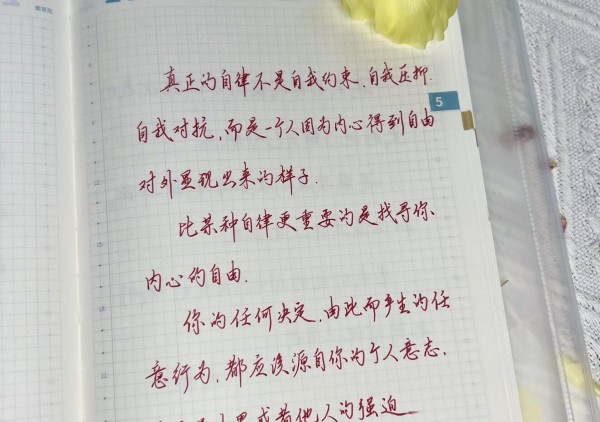 真正的自律不是自我约束.自我压抑.
自我对抗,而是一个人因为内心得到自由
对外显现出来的样子.
比某种自律更重要的是找寻你
内心的自由.
你的任何决定,由此而产生的任
意行为,都应该源自你的个人意志,
或者他人的强迫
5